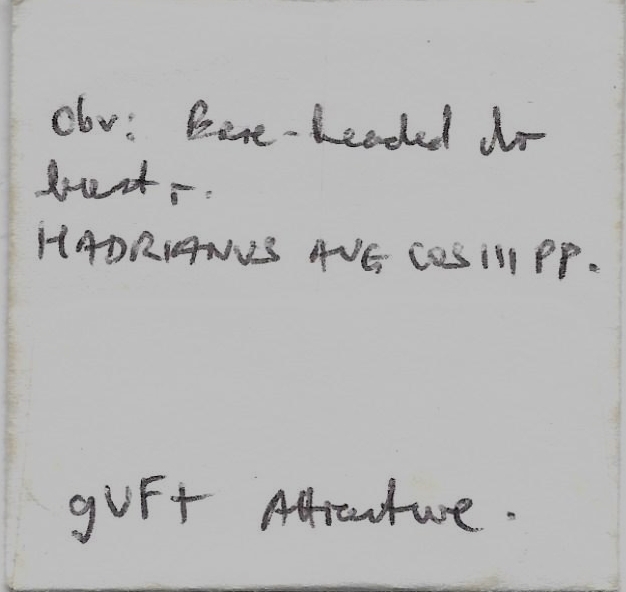 Obv: Bare-headed dr
bust r.
HADRIANVS AVG COS III PP.
gVF+ Attractive.